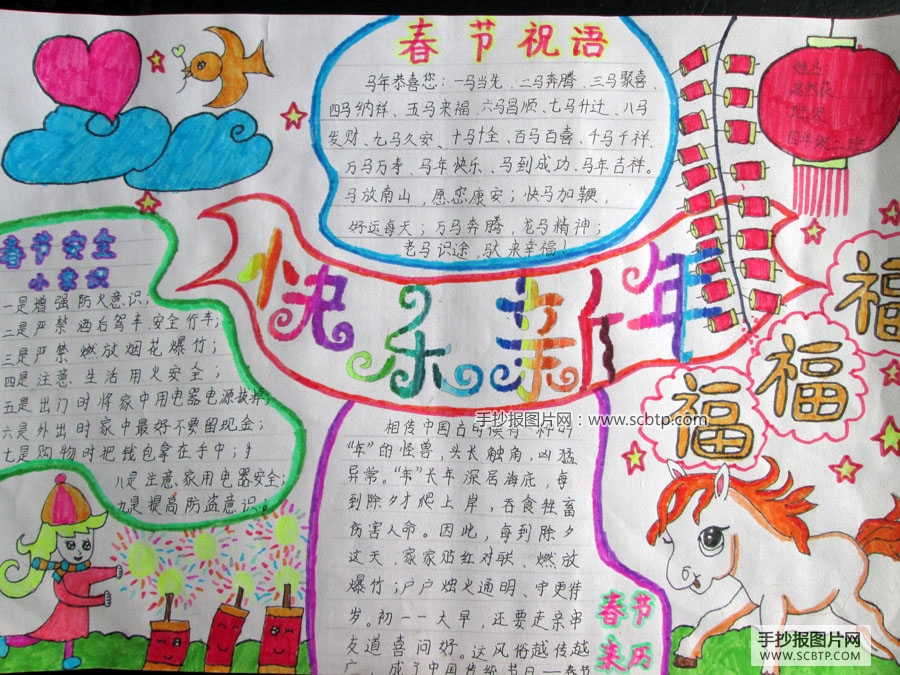 春节祝语
马年恭喜您：一马当先、二马奔腾、三马聚喜、
四马纳祥、五马来福、六马昌顺、七马升迁、八马
发财、九马久安、十马十全、百马百喜、千马千祥、
万马万寿、马年快乐、马到成功、马年吉祥。
马放南山，愿您康安；快马加鞭，
好运每天；万马奔腾，龙马精神；
老马识途，驮来幸福！
姓名
班级
四年级二班
快乐新年
春节安全
小常识
一是增强防火意识；
二是严禁酒后驾车、安全行车；
三是严禁燃放烟花爆竹；
四是注意生活用火安全；
五是出门时将家中用电器电源拔掉；
六是外出时家中最好不要留现金；
七是购物时把钱包拿在手中；
八是注意家用电器安全；
九是提高防盗意识。
福
福
福
手抄报图片网：www.scbtp.com
相传中国古时候有一种叫
“年”的怪兽，头长触角，凶猛
异常。“年”长年深居海底，每
到除夕才爬上岸，吞食牲畜
伤害人命。因此，每到除夕
这天，家家贴红对联、燃放
爆竹；户户烛火通明、守更待
岁。初一一大早，还要走亲串
友道喜问好。这风俗越传越
广，成了中国传统节日——春节
春节
来历
手抄报图片网
WWW.SCBTP.COM